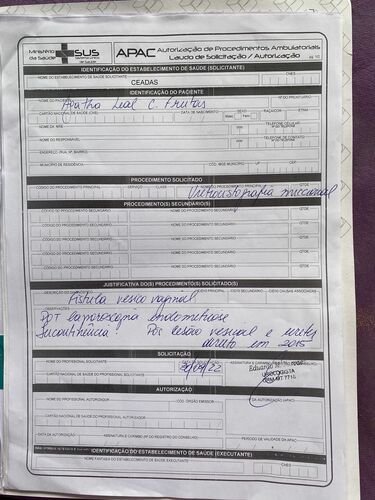 Ministério da Saúde
SUS
APAC
Autorização de Procedimentos Ambulatoriais
Laudo de Solicitação / Autorização
IDENTIFICAÇÃO DO ESTABELECIMENTO DE SAÚDE (SOLICITANTE)
NOME DO ESTABELECIMENTO DE SAÚDE SOLICITANTE
CNES
CEADAS
IDENTIFICAÇÃO DO PACIENTE
NOME DO PACIENTE
Nº DO PRONTUÁRIO
Agatha Leal C. Freitas
CARTÃO NACIONAL DE SAÚDE (CNS)
DATA DE NASCIMENTO
SEXO
RAÇA/COR
ETNIA
NOME DA MÃE
TELEFONE CELULAR
NOME DO RESPONSÁVEL
TELEFONE DE CONTATO
ENDEREÇO (RUA, Nº, BAIRRO)
MUNICÍPIO DE RESIDÊNCIA
CÓD. IBGE MUNICÍPIO
UF
CEP
PROCEDIMENTO SOLICITADO
CÓDIGO DO PROCEDIMENTO PRINCIPAL
SERVIÇO
CLASS
NOME DO PROCEDIMENTO PRINCIPAL
QTDE
Uretrocistografia miccional
PROCEDIMENTO(S) SECUNDÁRIO(S)
CÓDIGO DO PROCEDIMENTO SECUNDÁRIO
NOME DO PROCEDIMENTO SECUNDÁRIO
QTDE
CÓDIGO DO PROCEDIMENTO SECUNDÁRIO
NOME DO PROCEDIMENTO SECUNDÁRIO
QTDE
CÓDIGO DO PROCEDIMENTO SECUNDÁRIO
NOME DO PROCEDIMENTO SECUNDÁRIO
QTDE
CÓDIGO DO PROCEDIMENTO SECUNDÁRIO
NOME DO PROCEDIMENTO SECUNDÁRIO
QTDE
CÓDIGO DO PROCEDIMENTO SECUNDÁRIO
NOME DO PROCEDIMENTO SECUNDÁRIO
QTDE
JUSTIFICATIVA DO(S) PROCEDIMENTO(S) SOLICITADO(S)
DESCRIÇÃO DO DIAGNÓSTICO
CID10 PRINCIPAL
CID10 SECUNDÁRIO
CID10 CAUSAS ASSOCIADAS
Fistula vesico vaginal
OBSERVAÇÕES
POT laparoscopia endometriose
Incontinência! Por lesão vesical e ureter
direito em 2015
SOLICITAÇÃO
NOME DO PROFISSIONAL SOLICITANTE
CARTÃO NACIONAL DE SAÚDE DO PROFISSIONAL SOLICITANTE
UROLOGISTA
AUTORIZAÇÃO
NOME DO PROFISSIONAL AUTORIZADOR
CÓD. ÓRGÃO EMISSOR
CARTÃO NACIONAL DE SAÚDE DO PROFISSIONAL AUTORIZADOR
DATA DA AUTORIZAÇÃO
ASSINATURA E CARIMBO (Nº DO REGISTRO DO CONSELHO)
PERÍODO DE VALIDADE DA APAC
IDENTIFICAÇÃO DO ESTABELECIMENTO DE SAÚDE (EXECUTANTE)
NOME FANTASIA DO ESTABELECIMENTO DE SAÚDE EXECUTANTE
CNES